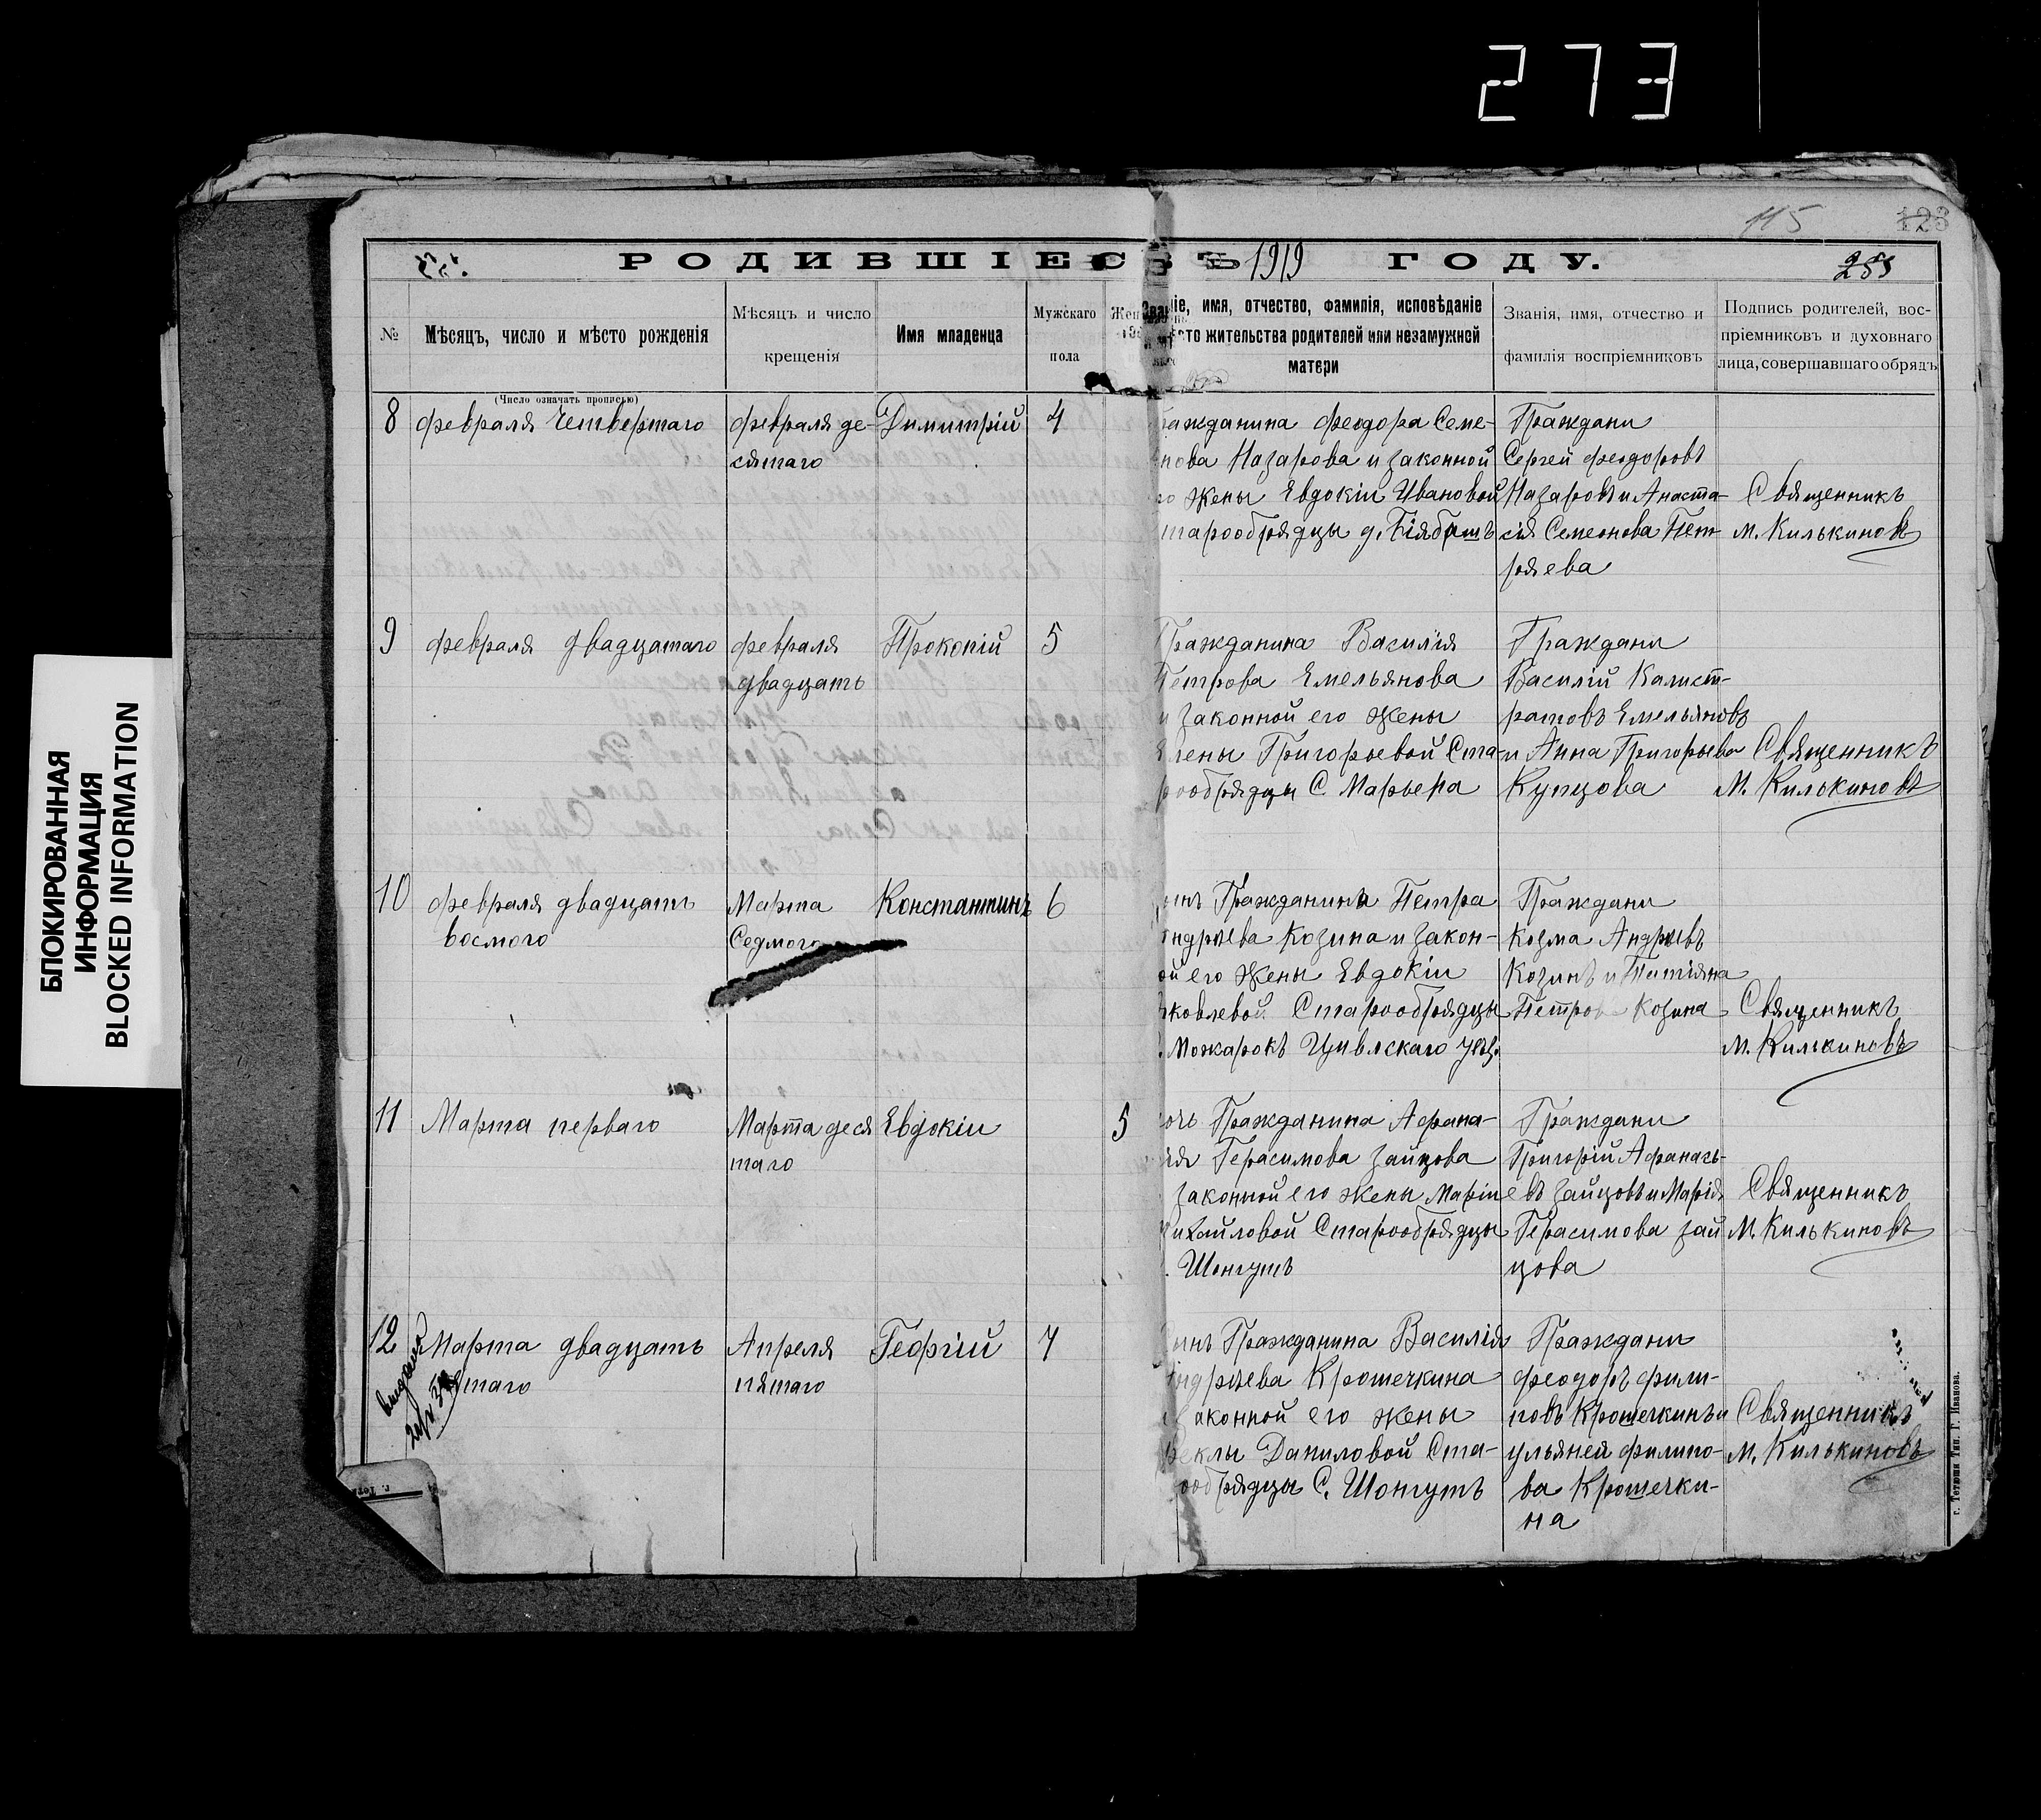 273
БЛОКИРОВАННАЯ
ИНФОРМАЦИЯ
BLOCKED INFORMATION
115
123
РОДИВШІЕС ВЪ 1919 ГОДУ.
255
№
Мѣсяцъ, число и мѣсто рожденія
(Число означать прописью)
Мѣсяцъ и число
крещенія
Имя младенца
Мужскаго
пола
Жен
Званіе, имя, отчество, фамилія, исповѣданіе
сто жительства родителей или незамужней
матери
Званія, имя, отчество и
фамилія воспріемниковъ
Подпись родителей, вос-
пріемниковъ и духовнаго
лица, совершавшаго обрядъ
8 февраля четвертаго
февраля де-
сятаго
Димитрій
4
ажданина феодора Семе-
нова Назарова и законной
го жены Евдокіи Ивановой
тарообрядцы д.
Граждани
Сергей феодоровъ
Назаровъ и Анаста-
сія Семенова Пет-
ряева
Священникъ
М. Килькиновъ
9 февраля двадцатаго
февраля
двадцать
Прокопій
5
Гражданина Василія
Петрова Емельянова
и законной его жены
Елены Григорьевой Ста-
рообрядцы С. Марьена
Граждани
Василій Калист-
ратовъ Емельяновъ
и Анна Григорьева
Купцова
Священникъ
М. Килькиновъ
10 февраля двадцать
восмого
Марта
Седмого
Константинъ
6
ынъ Гражданина Петра
ндрѣева Козина и закон-
ой его жены Евдокіи
яковлевой Старообрядцы
Можарокъ Цивлскаго уѣз.
Граждани
Козма Андрѣевъ
Козинъ и Татіяна
Петров Козина
Священникъ
М. Килькиновъ
11 Марта перваго
Марта деся
таго
Евдокіи
5
очь Гражданина Афана-
ія Герасимова Зайцова
законной его жены Маріи
ихайловой Старообрядцы
Шонгутъ
Граждани
Григорій Афанась-
евъ Зайцовъ и Марія
Герасимова Зай
цова
Священникъ
М. Килькиновъ
12 Марта двадцать
таго
Апреля
пятаго
Георгій
7
ынъ Гражданина Василія
ндрѣева Крошечкина
аконной его жены
Феклы Даниловой Ста-
ообрядцы С. Шонгутъ
Граждани
феодоръ фили-
повъ Крошечкинъ и
ульянея филипо-
ва Крошечки-
на
Священникъ
М. Килькиновъ
г. Тетюши Тип. Г. Иванова.